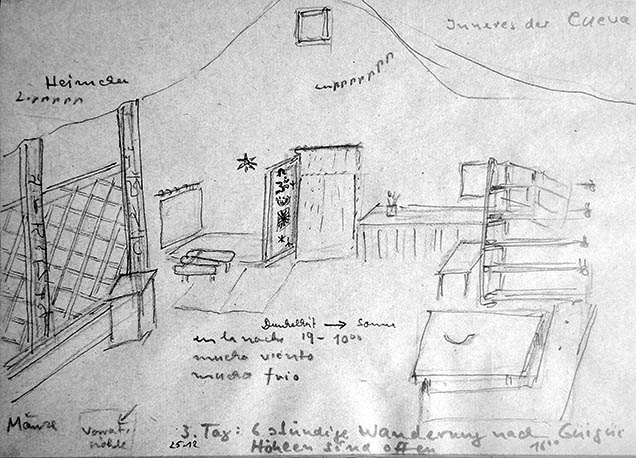 Inneres der Cueva
Heimchen
Dunkelheit → Sonne
en la noche 19 - 10⁰⁰
mucho viento
mucho frio
Mäuse
Vorrats
höhle
3. Tag: 6 stündige Wanderung nach
25-12
Höhlen sind offen
16⁰⁰